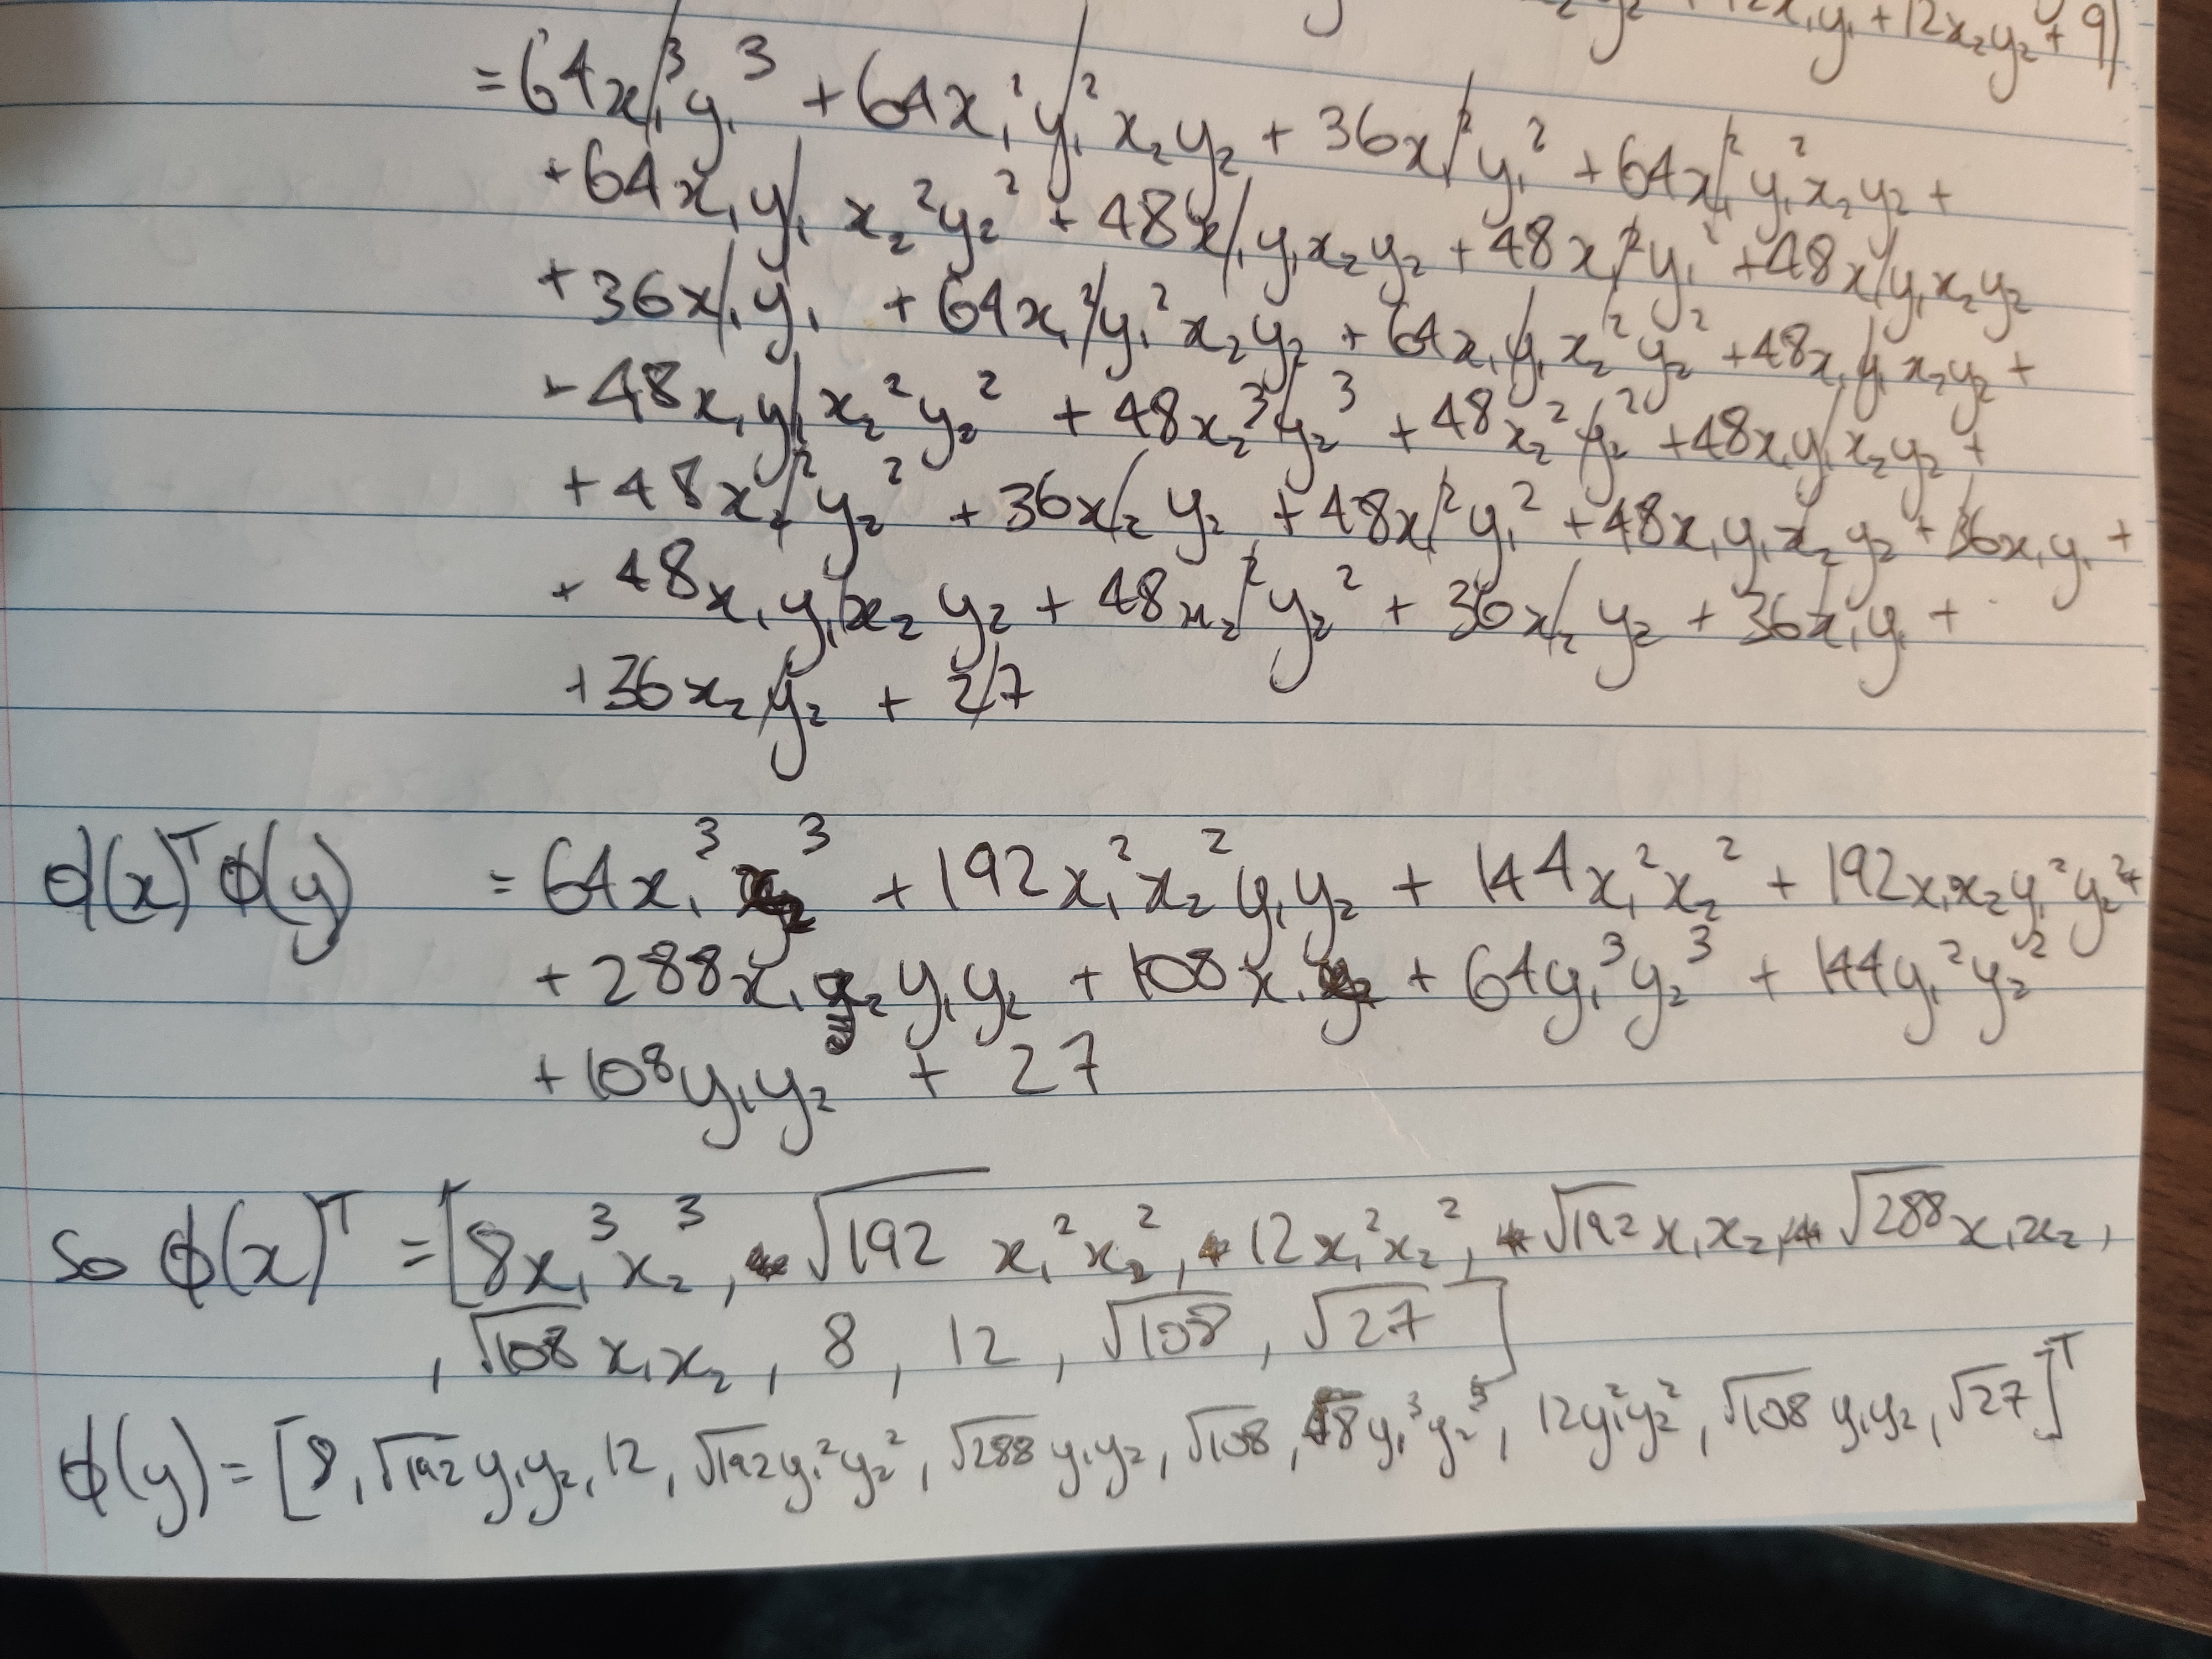 y₂ + 12x₁y₁ + 12x₂y₂ + 9)
= 64x₁³y₁³ + 64x₁²y₁²x₂y₂ + 36x₁²y₁² + 64x₁²y₁²x₂y₂ +
+ 64x₁y₁x₂²y₂² + 48x₁y₁x₂y₂ + 48x₁²y₁² + 48x₁y₁x₂y₂
+ 36x₁y₁ + 64x₁²y₁²x₂y₂ + 64x₁y₁x₂²y₂² + 48x₁y₁x₂y₂ +
+ 48x₁y₁x₂²y₂² + 48x₂³y₂³ + 48x₂²y₂² + 48x₁y₁x₂y₂ +
+ 48x₂²y₂² + 36x₂y₂ + 48x₁²y₁² + 48x₁y₁x₂y₂ + 36x₁y₁ +
+ 48x₁y₁x₂y₂ + 48x₂²y₂² + 36x₂y₂ + 36x₁y₁ +
+ 36x₂y₂ + 27
ϕ(x)ᵀϕ(y) = 64x₁³x₂³ + 192x₁²x₂²y₁y₂ + 144x₁²x₂² + 192x₁x₂y₁²y₂² +
+ 288x₁x₂y₁y₂ + 108x₁x₂ + 64y₁³y₂³ + 144y₁²y₂²
+ 108y₁y₂ + 27
so ϕ(x)ᵀ = [8x₁³x₂³, √192 x₁²x₂², 12x₁²x₂², √192x₁x₂, √288x₁x₂,
, √108 x₁x₂, 8, 12, √108, √27]
ϕ(y) = [8, √192y₁y₂, 12, √192y₁²y₂², √288y₁y₂, √108, 8y₁³y₂³, 12y₁²y₂², √108y₁y₂, √27]ᵀ